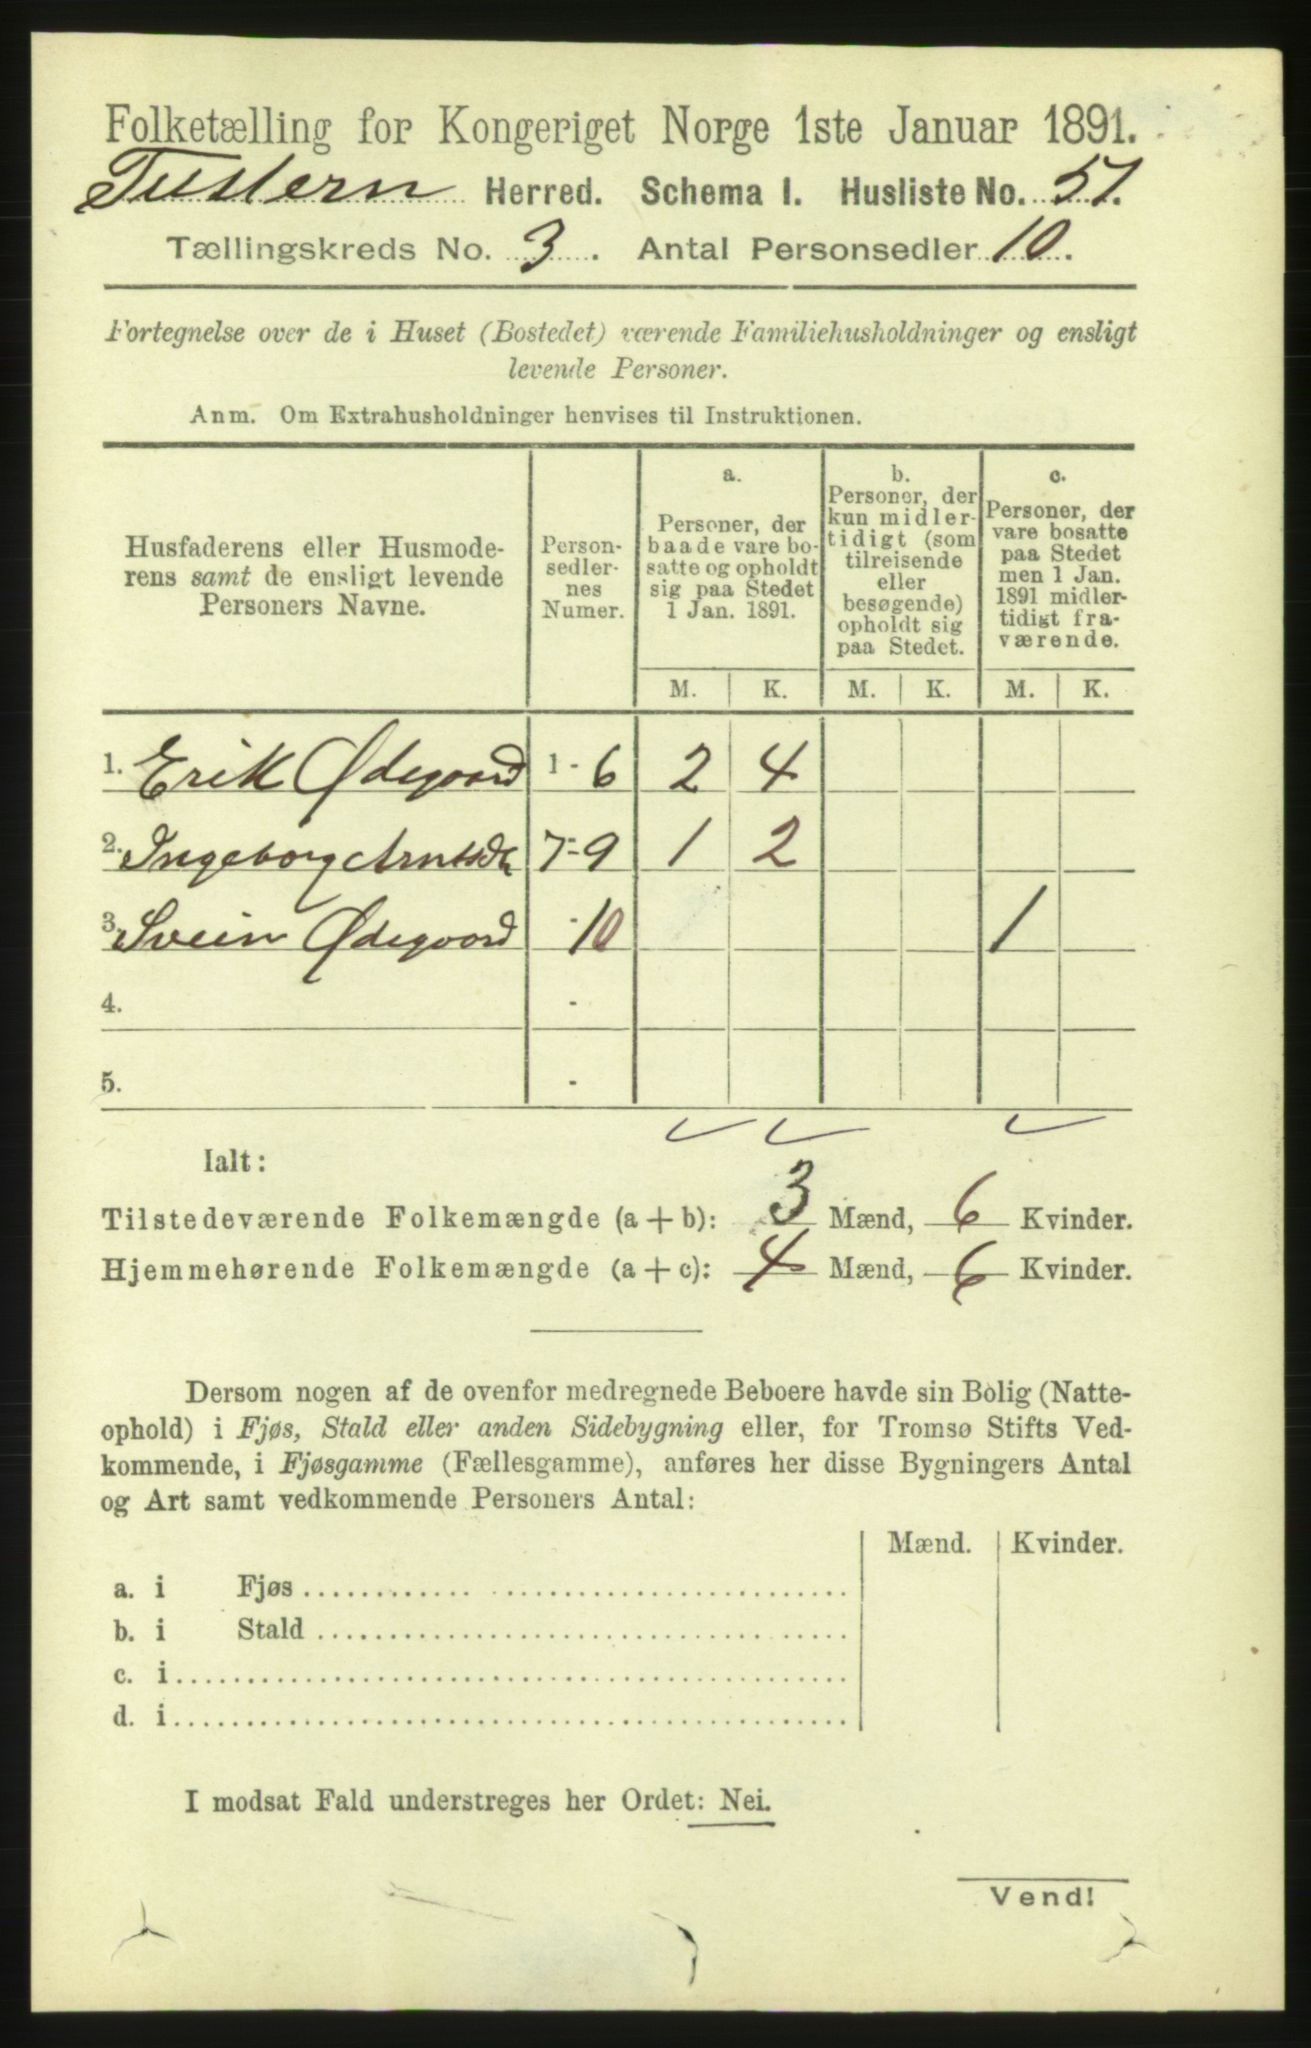 Folketælling for Kongeriget Norge 1ste Januar 1891.
Tustern Herred. Schema I. Husliste No. 51.
Tællingskreds No. 3. Antal Personsedler 10.
Fortegnelse over de i Huset (Bostedet) værende Familiehusholdninger og ensligt
levende Personer.
Anm. Om Extrahusholdninger henvises til Instruktionen.
Husfaderens eller Husmode-
rens samt de ensligt levende
Personers Navne.
Person-
sedler-
nes
Numer.
a.
Personer, der
baade vare bo-
satte og opholdt
sig paa Stedet
1 Jan. 1891.
b.
Personer, der
kun midler-
tidigt (som
tilreisende
eller
besøgende)
opholdt sig
paa Stedet.
c.
Personer, der
vare bosatte
paa Stedet
men 1 Jan.
1891 midler-
tidigt fra-
værende.
M. K. M. K. M. K.
1. Erik Ødegaard 1-6 2 4
2. Ingeborg Arntsdt 7-9 1 2
3. Svein Ødegaard -10 1
4. -
5. -
Ialt:
Tilstedeværende Folkemængde (a+b): 3 Mænd, 6 Kvinder.
Hjemmehørende Folkemængde (a+c): 4 Mænd, 6 Kvinder.
Dersom nogen af de ovenfor medregnede Beboere havde sin Bolig (Natte-
ophold) i Fjøs, Stald eller anden Sidebygning eller, for Tromsø Stifts Ved-
kommende, i Fjøsgamme (Fællesgamme), anføres her disse Bygningers Antal
og Art samt vedkommende Personers Antal:
Mænd. Kvinder.
a. i Fjøs
b. i Stald
c. i
d. i
I modsat Fald understreges her Ordet: Nei.
Vend!